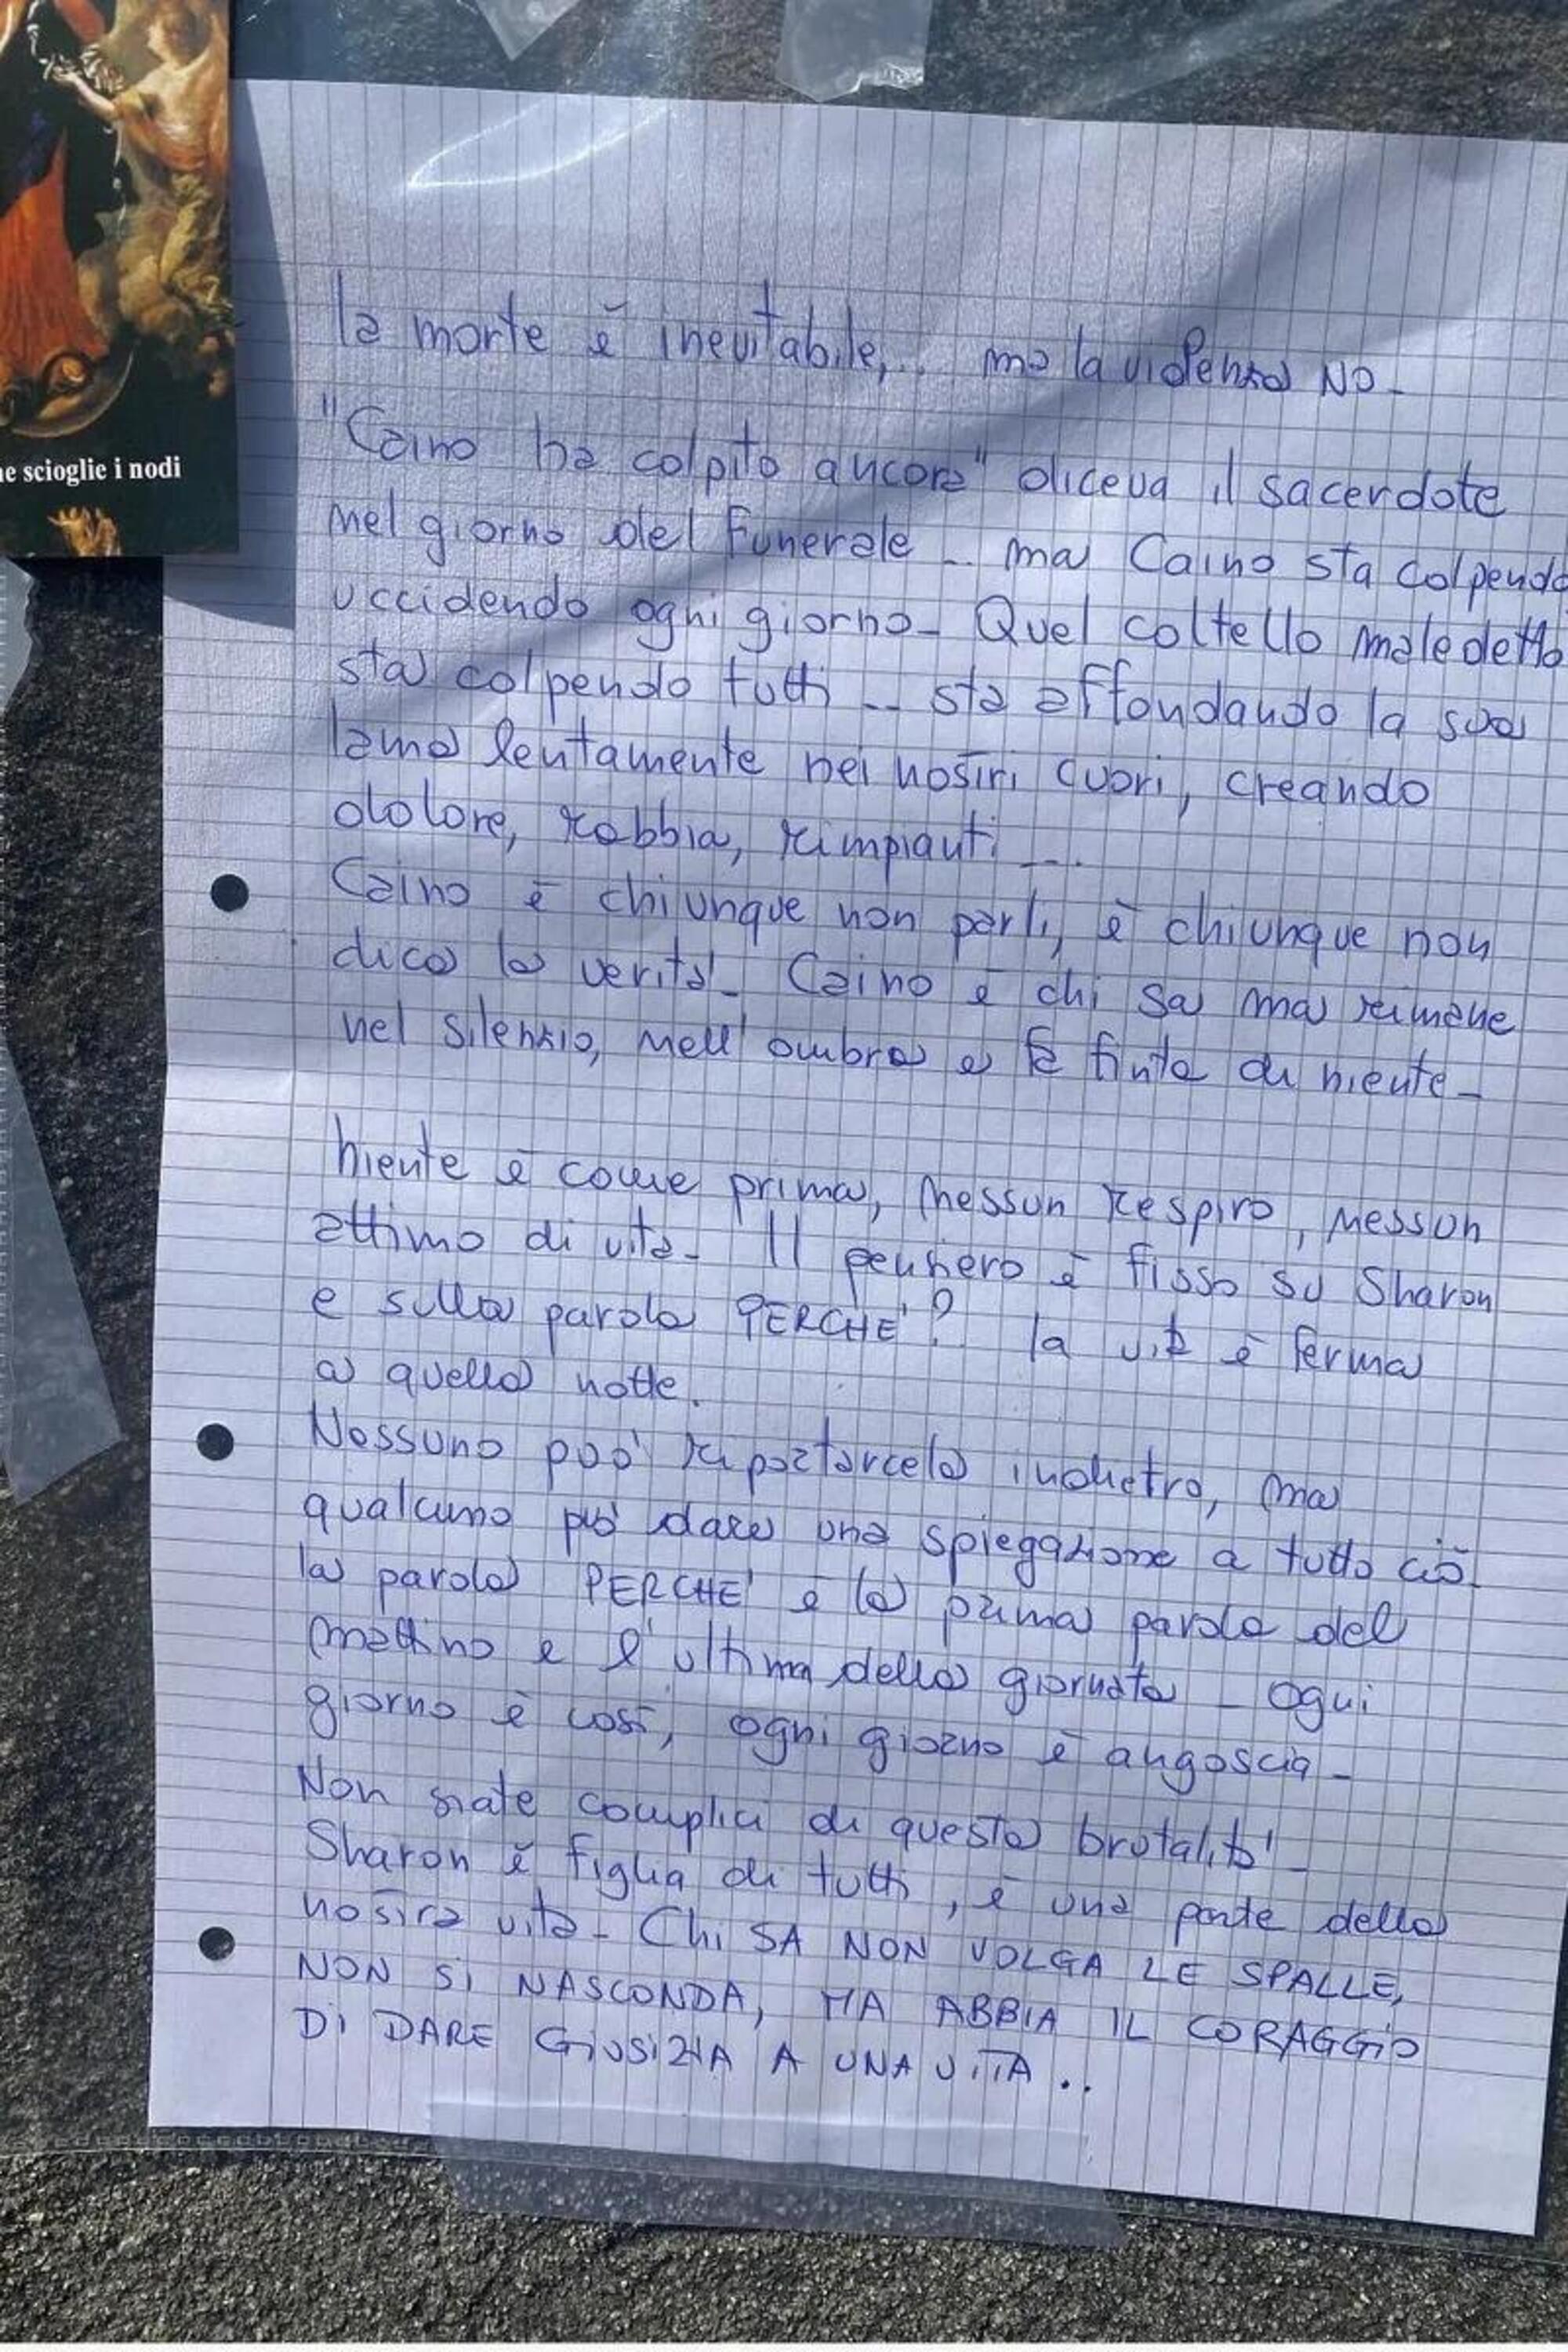 ne scioglie i nodi
la morte è inevitabile,.. ma la violenza NO-
"Caino ha colpito ancora" diceva il sacerdote
nel giorno del funerale .. ma Caino sta colpendo
uccidendo ogni giorno- Quel coltello maledetto
sta colpendo tutti .. sta affondando la sua
lama lentamente nei nostri cuori, creando
dolore, rabbia, rimpianti ...
Caino è chiunque non parli, è chiunque non
dica la verità- Caino è chi sa ma rimane
nel silenzio, nell'ombra e fa finta di niente-
niente è come prima, nessun respiro, nessun
attimo di vita- Il pensiero è fisso su Sharon
e sulla parola PERCHE'? la vita è ferma
a quella notte.
Nessuno può riportarcela indietro, ma
qualcuno può dare una spiegazione a tutto ciò.
la parola PERCHE' è la prima parola del
mattino e l'ultima della giornata - ogni
giorno è così, ogni giorno è angoscia-
Non siate complici di questa brutalità-
Sharon è figlia di tutti, è una parte della
nostra vita- Chi SA NON VOLGA LE SPALLE,
NON Si NASCONDA, MA ABBIA IL CORAGGiO
Di DARE GiUSTIZIA A UNA VITA ..